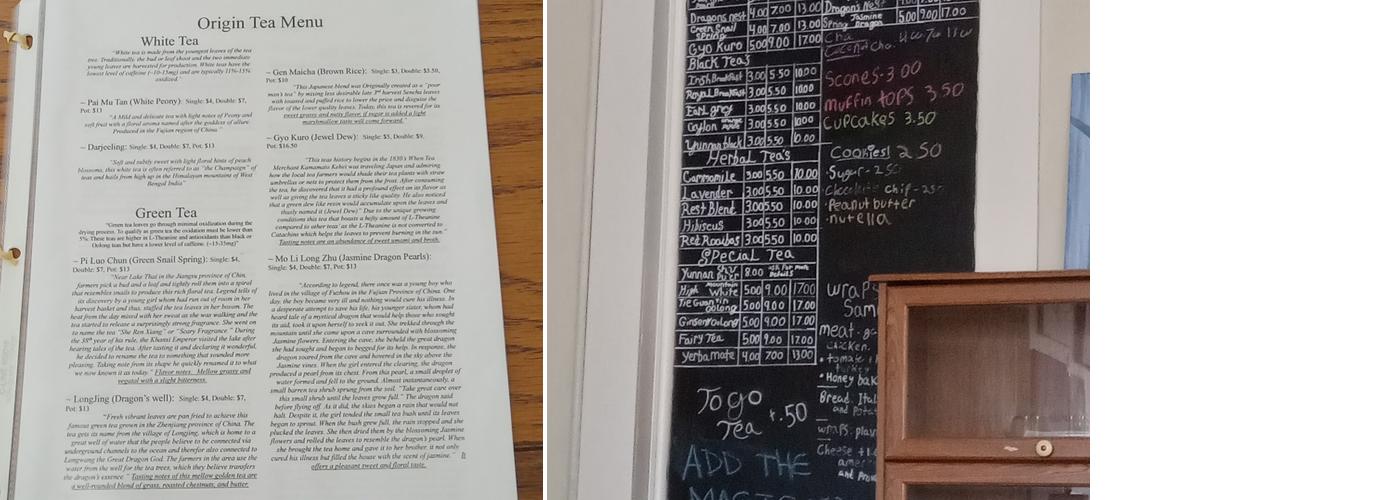 Origin Tea Menu
White Tea
"White tea is made from the youngest leaves of the tea
tree. Traditionally, the bud or leaf shoot and the two immediate
young leaves are harvested for production. White teas have the
lowest level of caffeine (~10-15mg) and are typically 11%-15%
oxidized."
~ Pai Mu Tan (White Peony): Single: $4, Double: $7,
Pot: $13
"A Mild and delicate tea with light notes of Peony and
soft fruit with a floral aroma named after the goddess of allure.
Produced in the Fujian region of China."
~ Darjeeling: Single: $4, Double: $7, Pot: $13
"Soft and subtly sweet with light floral hints of peach
blossoms, this white tea is often referred to as "the Champaign" of
teas and hails from high up in the Himalayan mountains of West
Bengal India"
Green Tea
"Green tea leaves go through minimal oxidization during the
drying process. To qualify as green tea the oxidation must be lower than
5%. These teas are higher in L-Theanine and antioxidants than black or
Oolong teas but have a lower level of caffeine. (~15-35mg)"
~ Pi Luo Chun (Green Snail Spring): Single: $4,
Double: $7, Pot: $13
"Near Lake Thai in the Jiangsu province of Chin,
farmers pick a bud and a leaf and tightly roll them into a spiral
that resembles snails to produce this rich floral tea. Legend tells of
its discovery by a young girl whom had run out of room in her
harvest basket and thus, stuffed the tea leaves in her bosom. The
heat from the day mixed with her sweat as she was walking and the
tea started to release a surprisingly strong fragrance. She went on
to name the tea "She Ren Xiang" or "Scary Fragrance." During
the 38th year of his rule, the Khanxi Emperor visited the lake after
hearing tales of the tea. After tasting it and declaring it wonderful,
he decided to rename the tea to something that sounded more
pleasing. Taking note from its shape he quickly renamed it to what
we now known it as today." Flavor notes: Mellow grassy and
vegetal with a slight bitterness.
~ LongJing (Dragon's well): Single: $4, Double: $7,
Pot: $13
"Fresh vibrant leaves are pan fried to achieve this
famous green tea grown in the Zhenjiang province of China. The
tea gets its name from the village of Longjing, which is home to a
great well of water that the people believe to be connected via
underground channels to the ocean and therefor also connected to
Longwang the Great Dragon God. The farmers in the area use the
water from the well for the tea trees, which they believe transfers
the dragon's essence." Tasting notes of this mellow golden tea are
a well-rounded blend of grass, roasted chestnuts, and butter.
~ Gen Maicha (Brown Rice): Single: $3, Double: $3.50,
Pot: $10
"This Japanese blend was Originally created as a "poor
man's tea" by mixing less desirable late 3rd harvest Sencha leaves
with toasted and puffed rice to lower the price and disguise the
flavor of the lower quality leaves. Today, this tea is revered for its
sweet grassy and nutty flavor, if sugar is added a light
marshmallow taste will come forward."
~ Gyo Kuro (Jewel Dew): Single: $5, Double: $9,
Pot: $16.50
"This teas history begins in the 1830's When Tea
Merchant Kamamato Kahei was traveling Japan and admiring
how the local tea farmers would shade their tea plants with straw
umbrellas or nets to protect them from the frost. After consuming
the tea, he discovered that it had a profound effect on its flavor as
well as giving the tea leaves a sticky like quality. He also noticed
that a green dew like resin would accumulate upon the leaves and
thusly named it (Jewel Dew)" Due to the unique growing
conditions this tea that boasts a hefty amount of L-Theanine
compared to other teas' as the L-Theanine is not converted to
Catachins which helps the leaves to prevent burning in the sun."
Tasting notes are an abundance of sweet umami and broth.
~ Mo Li Long Zhu (Jasmine Dragon Pearls):
Single: $4, Double: $7, Pot: $13
"According to legend, there once was a young boy who
lived in the village of Fuzhou in the Fujian Province of China. One
day, the boy became very ill and nothing would cure his illness. In
a desperate attempt to save his life, his younger sister, whom had
heard tale of a mystical dragon that would help those who sought
its aid, took it upon herself to seek it out. She trekked through the
mountain until she came upon a cave surrounded with blossoming
Jasmine flowers. Entering the cave, she beheld the great dragon
she had sought and began to begged for its help. In response, the
dragon soared from the cave and hovered in the sky above the
Jasmine vines. When the girl entered the clearing, the dragon
produced a pearl from its chest. From this pearl, a small droplet of
water formed and fell to the ground. Almost instantaneously, a
small barren tea shrub sprung from the soil. "Take great care over
this small shrub until the leaves grow full." The dragon said
before flying off. As it did, the skies began a rain that would not
halt. Despite it, the girl tended the small tea bush until its leaves
began to sprout. When the bush grew full, the rain stopped and she
plucked the leaves. She then dried them by the blooming Jasmine
flowers and rolled the leaves to resemble the dragon's pearl. When
she brought the tea home and gave it to her brother, it not only
cured his illness but filled the house with the scent of jasmine." It
offers a pleasant tweet and floral taste.
Dragons nest 4.00 7.00 13.00
Green Snail Spring 4.00 7.00 13.00
Gyo Kuro 5.00 9.00 17.00
Black Tea's
Irish Breakfast 3.00 5.50 10.00
Royal Breakfast 3.00 5.50 10.00
Earl grey 3.00 5.50 10.00
Ceylon 3.00 5.50 10.00
Yunnan black 3.00 5.50 10.00
Herbal Tea's
Cammomile 3.00 5.50 10.00
Lavender 3.00 5.50 10.00
Rest Blend 3.00 5.50 10.00
Hibiscus 3.00 5.50 10.00
Red Rooibos 3.00 5.50 10.00
Special Tea
Yunnan 8.00 Ask For more Details
High Mountain White 5.00 9.00 17.00
Tie Guan Yin oolong 5.00 9.00 17.00
Ginseng oolong 5.00 9.00 17.00
Fairy Tea 5.00 9.00 17.00
Yerba mate 4.00 7.00 13.00
To go
Tea +.50
ADD THE
Dragon's Nest
Spring Jasmine Dragon 5.00 9.00 17.00
Scones-3 00
muffin tops 3.50
Cupcakes 3.50
Cookies! 2 50
·Sugar-250
·Chocolate chip-25
·Peanutbutter
·nutella
wraps
Sam
meat-
chicken
·tomato
turkey
·Honey bak
Bread. Ital
and Potat
wraps.
Cheese
amer
and Prov